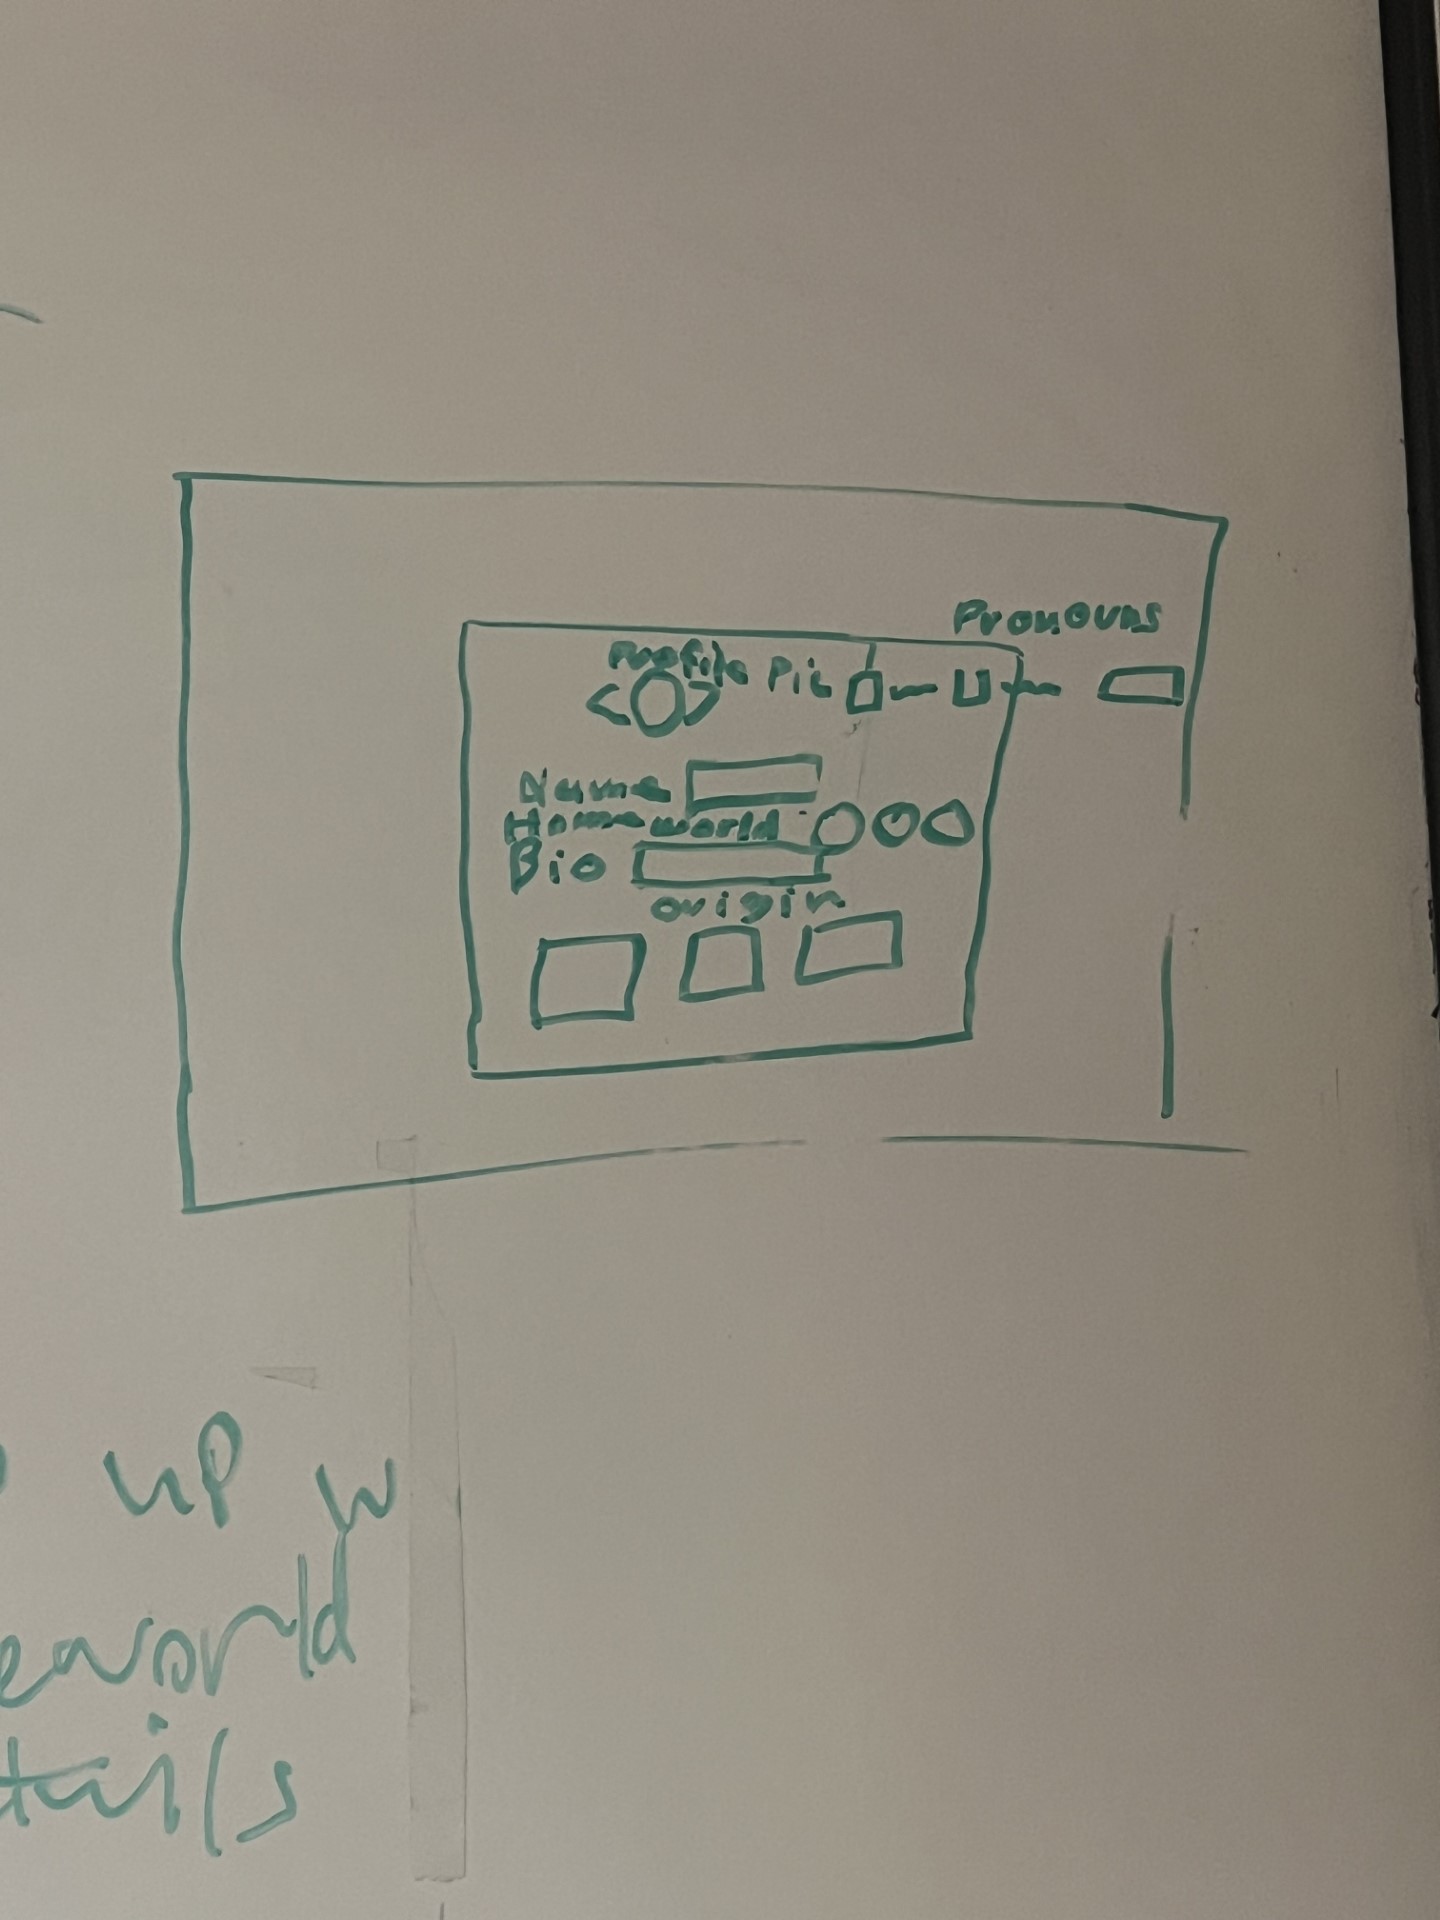 Pronouns
Profile Pic
Name
Homeworld
Bio
origin
up w
eworld
tails